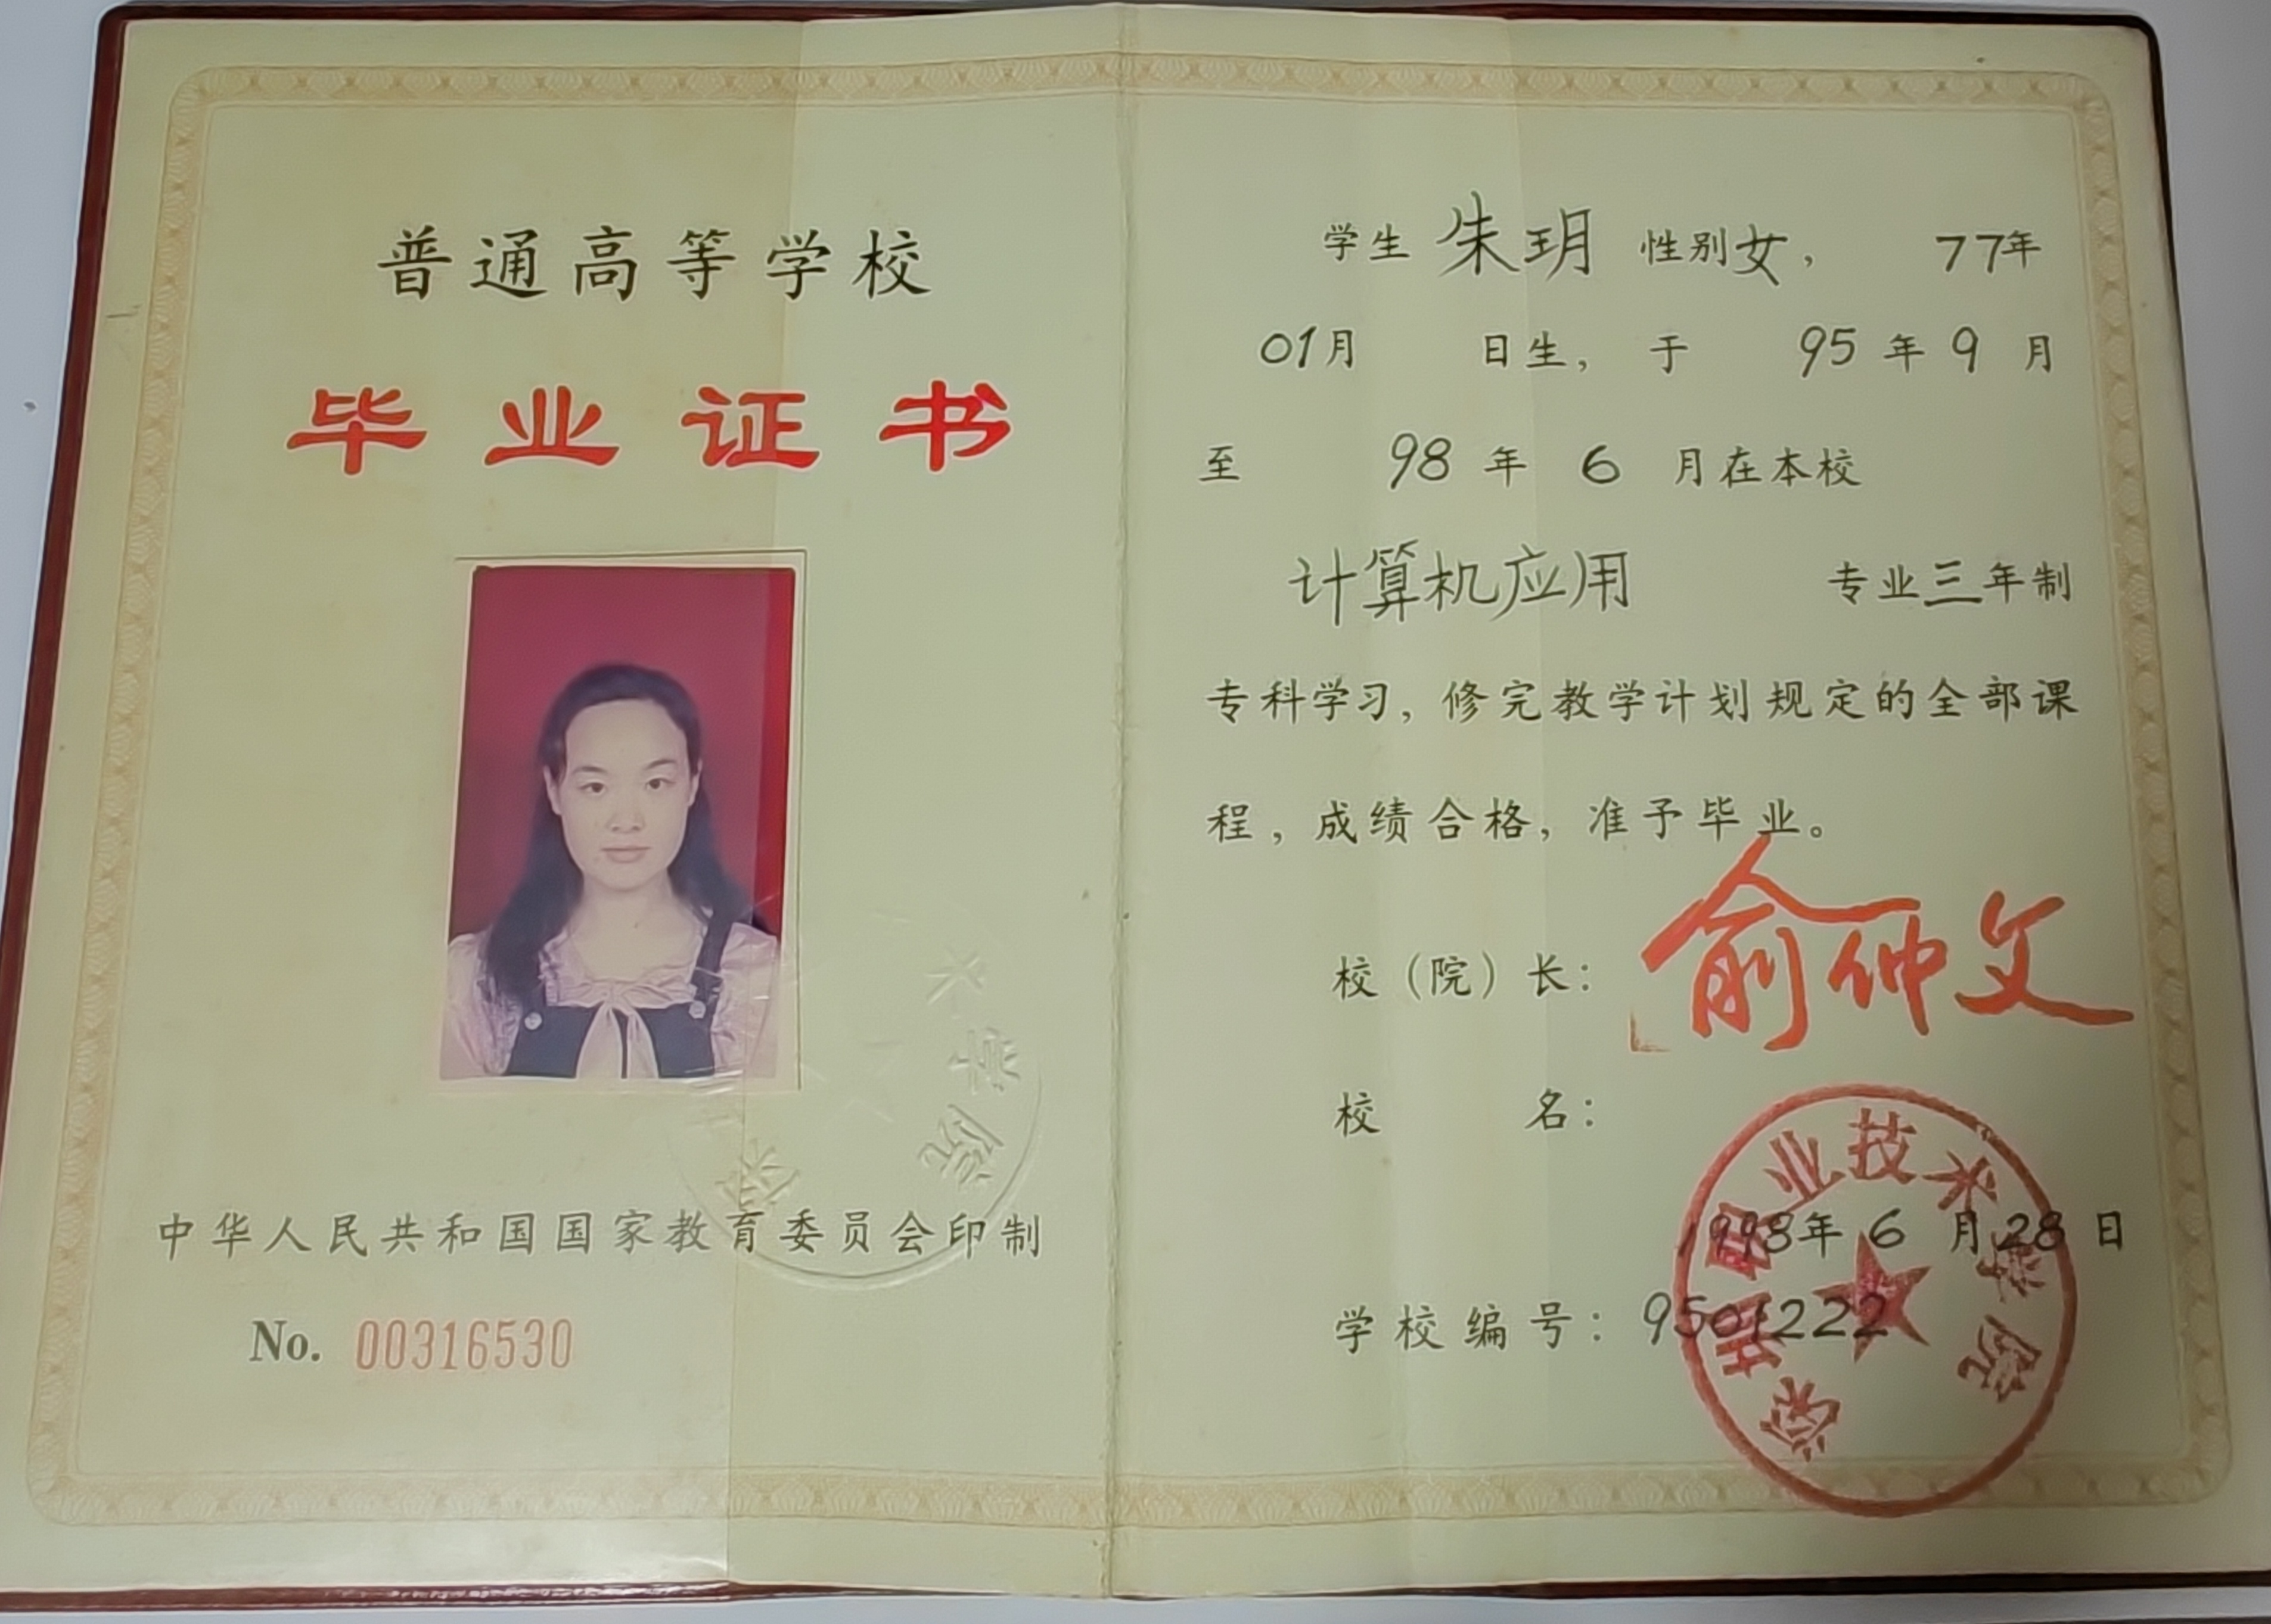 普通高等学校
毕业证书
中华人民共和国国家教育委员会印制
No. 00316530
学生 朱玥 性别女， 77年
01月 日生， 于 95年9月
至 98年6月在本校
计算机应用 专业三年制
专科学习，修完教学计划规定的全部课
程，成绩合格，准予毕业。
校（院）长： 俞仲文
校 名：
深圳职业技术学院
1998年6月28日
学校编号：9501222